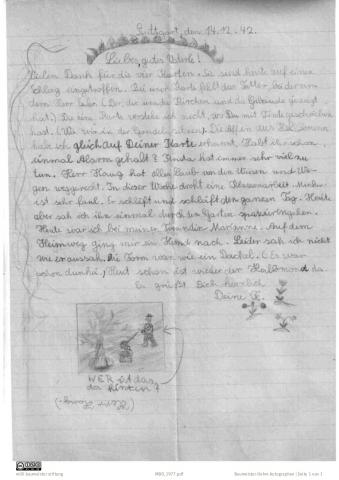 Stuttgart, den 14.12.42.
Lieber, guter Vaterle!
Vielen Dank für die vier Karten. Sie sind heute auf einen
Schlag eingetroffen. Die eine Karte fällt der
dem Herr (Der, die wieder Kirchen und die Gebäude zeigst
hast.) Die eine Karte verstehe ich nicht, wo Du mit Tinte geschrieben
hast. (Wo wir in der Gondel sitzen). Die Affen aus
habe ich gleich auf Deiner Karte erkannt. Habt ihr schon
einmal Alarm gehabt? Krista hat immer sehr viel zu
tun. Herr Haug hat alles Laub von den Wiesen und We-
gen weggerecht. In dieser Woche droht eine Klassenarbeit.
ist sehr faul. Er schläft und schläft den ganzen Tag. Heute
aber sah ich ihn einmal durch den Garten spazierengehen.
Heute war ich bei meiner Freundin Marianne. Auf dem
Heimweg ging mir ein Hund nach. Leider sah ich nicht
wie er aussah. Die Form war wie ein Dackel. (Es war
schon dunkel.) Heut schon ist wieder der Halbmond da.
Es grüßt Dich herzlich
Deine F.
WER ist das
da hinten?
(Herr Haug.)
will baumeister stiftung
Baumeister-Rehm Autographen | Seite 1 von 1